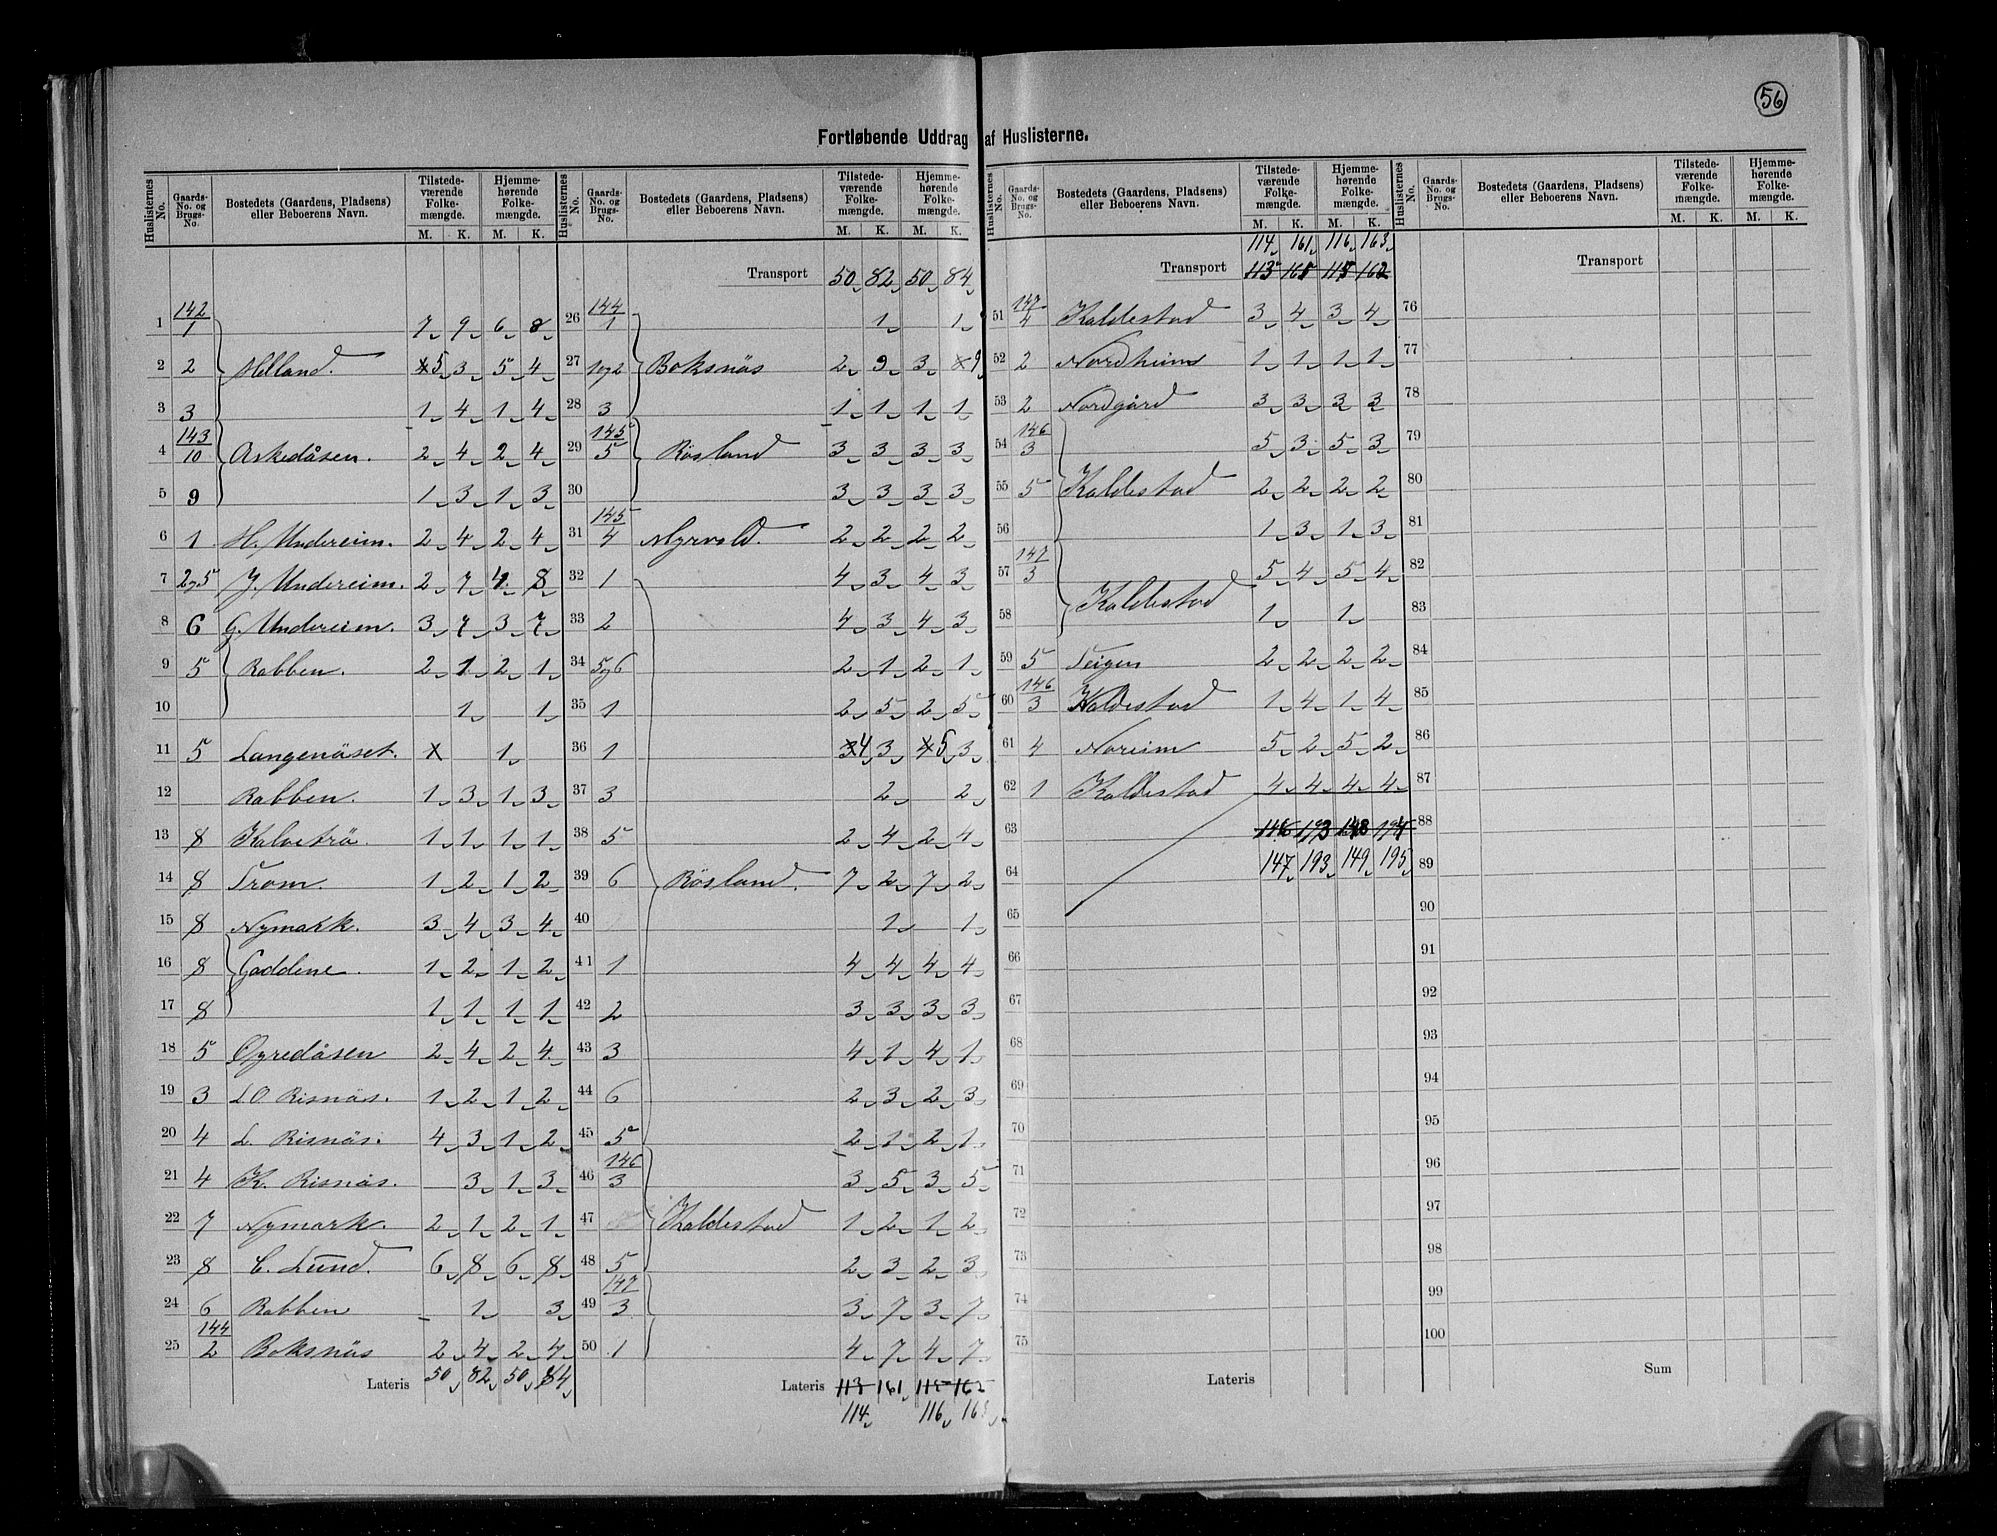 56
Fortløbende Uddrag af Huslisterne.
Huslisternes No. Gaards-No. og Brugs-No. Bostedets (Gaardens, Pladsens) eller Beboerens Navn. Tilstedeværende Folkemængde. Hjemmehørende Folkemængde. M. K. M. K.
1 142/1 7 9 6 8
2 2 Helland. 5 3 5 4
3 3 1 4 1 4
4 143/10 Askedåsen. 2 4 2 4
5 9 1 3 1 3
6 1 H. Undereim. 2 4 2 4
7 2og5 J. Undereim. 2 7 4 8
8 6 G. Undereim. 3 7 3 7
9 5 Rabben. 2 1 2 1
10 1 1
11 5 Langenäset. x 1
12 Rabben. 1 3 1 3
13 8 Kalvetrö. 1 1 1 1
14 8 Trom. 1 2 1 2
15 8 Nymark. 3 4 3 4
16 8 Gaddene. 1 2 1 2
17 8 1 1 1 1
18 5 Oyredåsen 2 4 2 4
19 3 LO Risnäs. 1 2 1 2
20 4 L. Risnäs. 4 3 1 2
21 4 K. Risnäs. 3 1 3
22 7 Nymark. 2 1 2 1
23 8 C. Lund. 6 8 6 8
24 6 Rabben - 1 3
25 144/2 Boksnäs 2 4 2 4
Lateris 50 82 50 84
Huslisternes No. Gaards-No. og Brugs-No. Bostedets (Gaardens, Pladsens) eller Beboerens Navn. Tilstedeværende Folkemængde. Hjemmehørende Folkemængde. M. K. M. K.
Transport 50 82 50 84
26 144/1 1 1
27 1og2 Boksnäs 2 9 3 x9
28 3 1 1 1 1
29 145/5 Rösland 3 3 3 3
30 3 3 3 3
31 145/4 Myrvold. 2 2 2 2
32 1 4 3 4 3
33 2 4 3 4 3
34 5og6 2 1 2 1
35 1 2 5 2 5
36 1 4 3 5 3
37 3 2 2
38 5 2 4 2 4
39 6 Rösland. 7 2 7 2
40 1 1
41 1 4 4 4 4
42 2 3 3 3 3
43 3 4 1 4 1
44 6 2 3 2 3
45 5 2 1 2 1
46 146/3 3 5 3 5
47 Kaldestad 1 2 1 2
48 5 2 3 2 3
49 147/3 3 7 3 7
50 1 4 7 4 7
Lateris 113 161 115 162
114 116 163
Huslisternes No. Gaards-No. og Brugs-No. Bostedets (Gaardens, Pladsens) eller Beboerens Navn. Tilstedeværende Folkemængde. Hjemmehørende Folkemængde. M. K. M. K.
114 161 116 163
Transport 113 115 162
51 147/4 Kaldestad 3 4 3 4
52 2 Nordheim 1 1 1 1
53 2 Nordgård 3 3 3 3
54 146/3 5 3 5 3
55 5 Kaldestad 2 2 2 2
56 1 3 1 3
57 147/3 5 4 5 4
58 Kaldestad 1 1
59 5 Teigen 2 2 2 2
60 146/3 Kaldestad 1 4 1 4
61 4 Noreim 5 2 5 2
62 1 Kaldestad 4 4 4 4
63 146 193 148 194
64 147 193 149 195
65
66
67
68
69
70
71
72
73
74
75
Lateris
Huslisternes No. Gaards-No. og Brugs-No. Bostedets (Gaardens, Pladsens) eller Beboerens Navn. Tilstedeværende Folkemængde. Hjemmehørende Folkemængde. M. K. M. K.
Transport
76
77
78
79
80
81
82
83
84
85
86
87
88
89
90
91
92
93
94
95
96
97
98
99
100
Sum